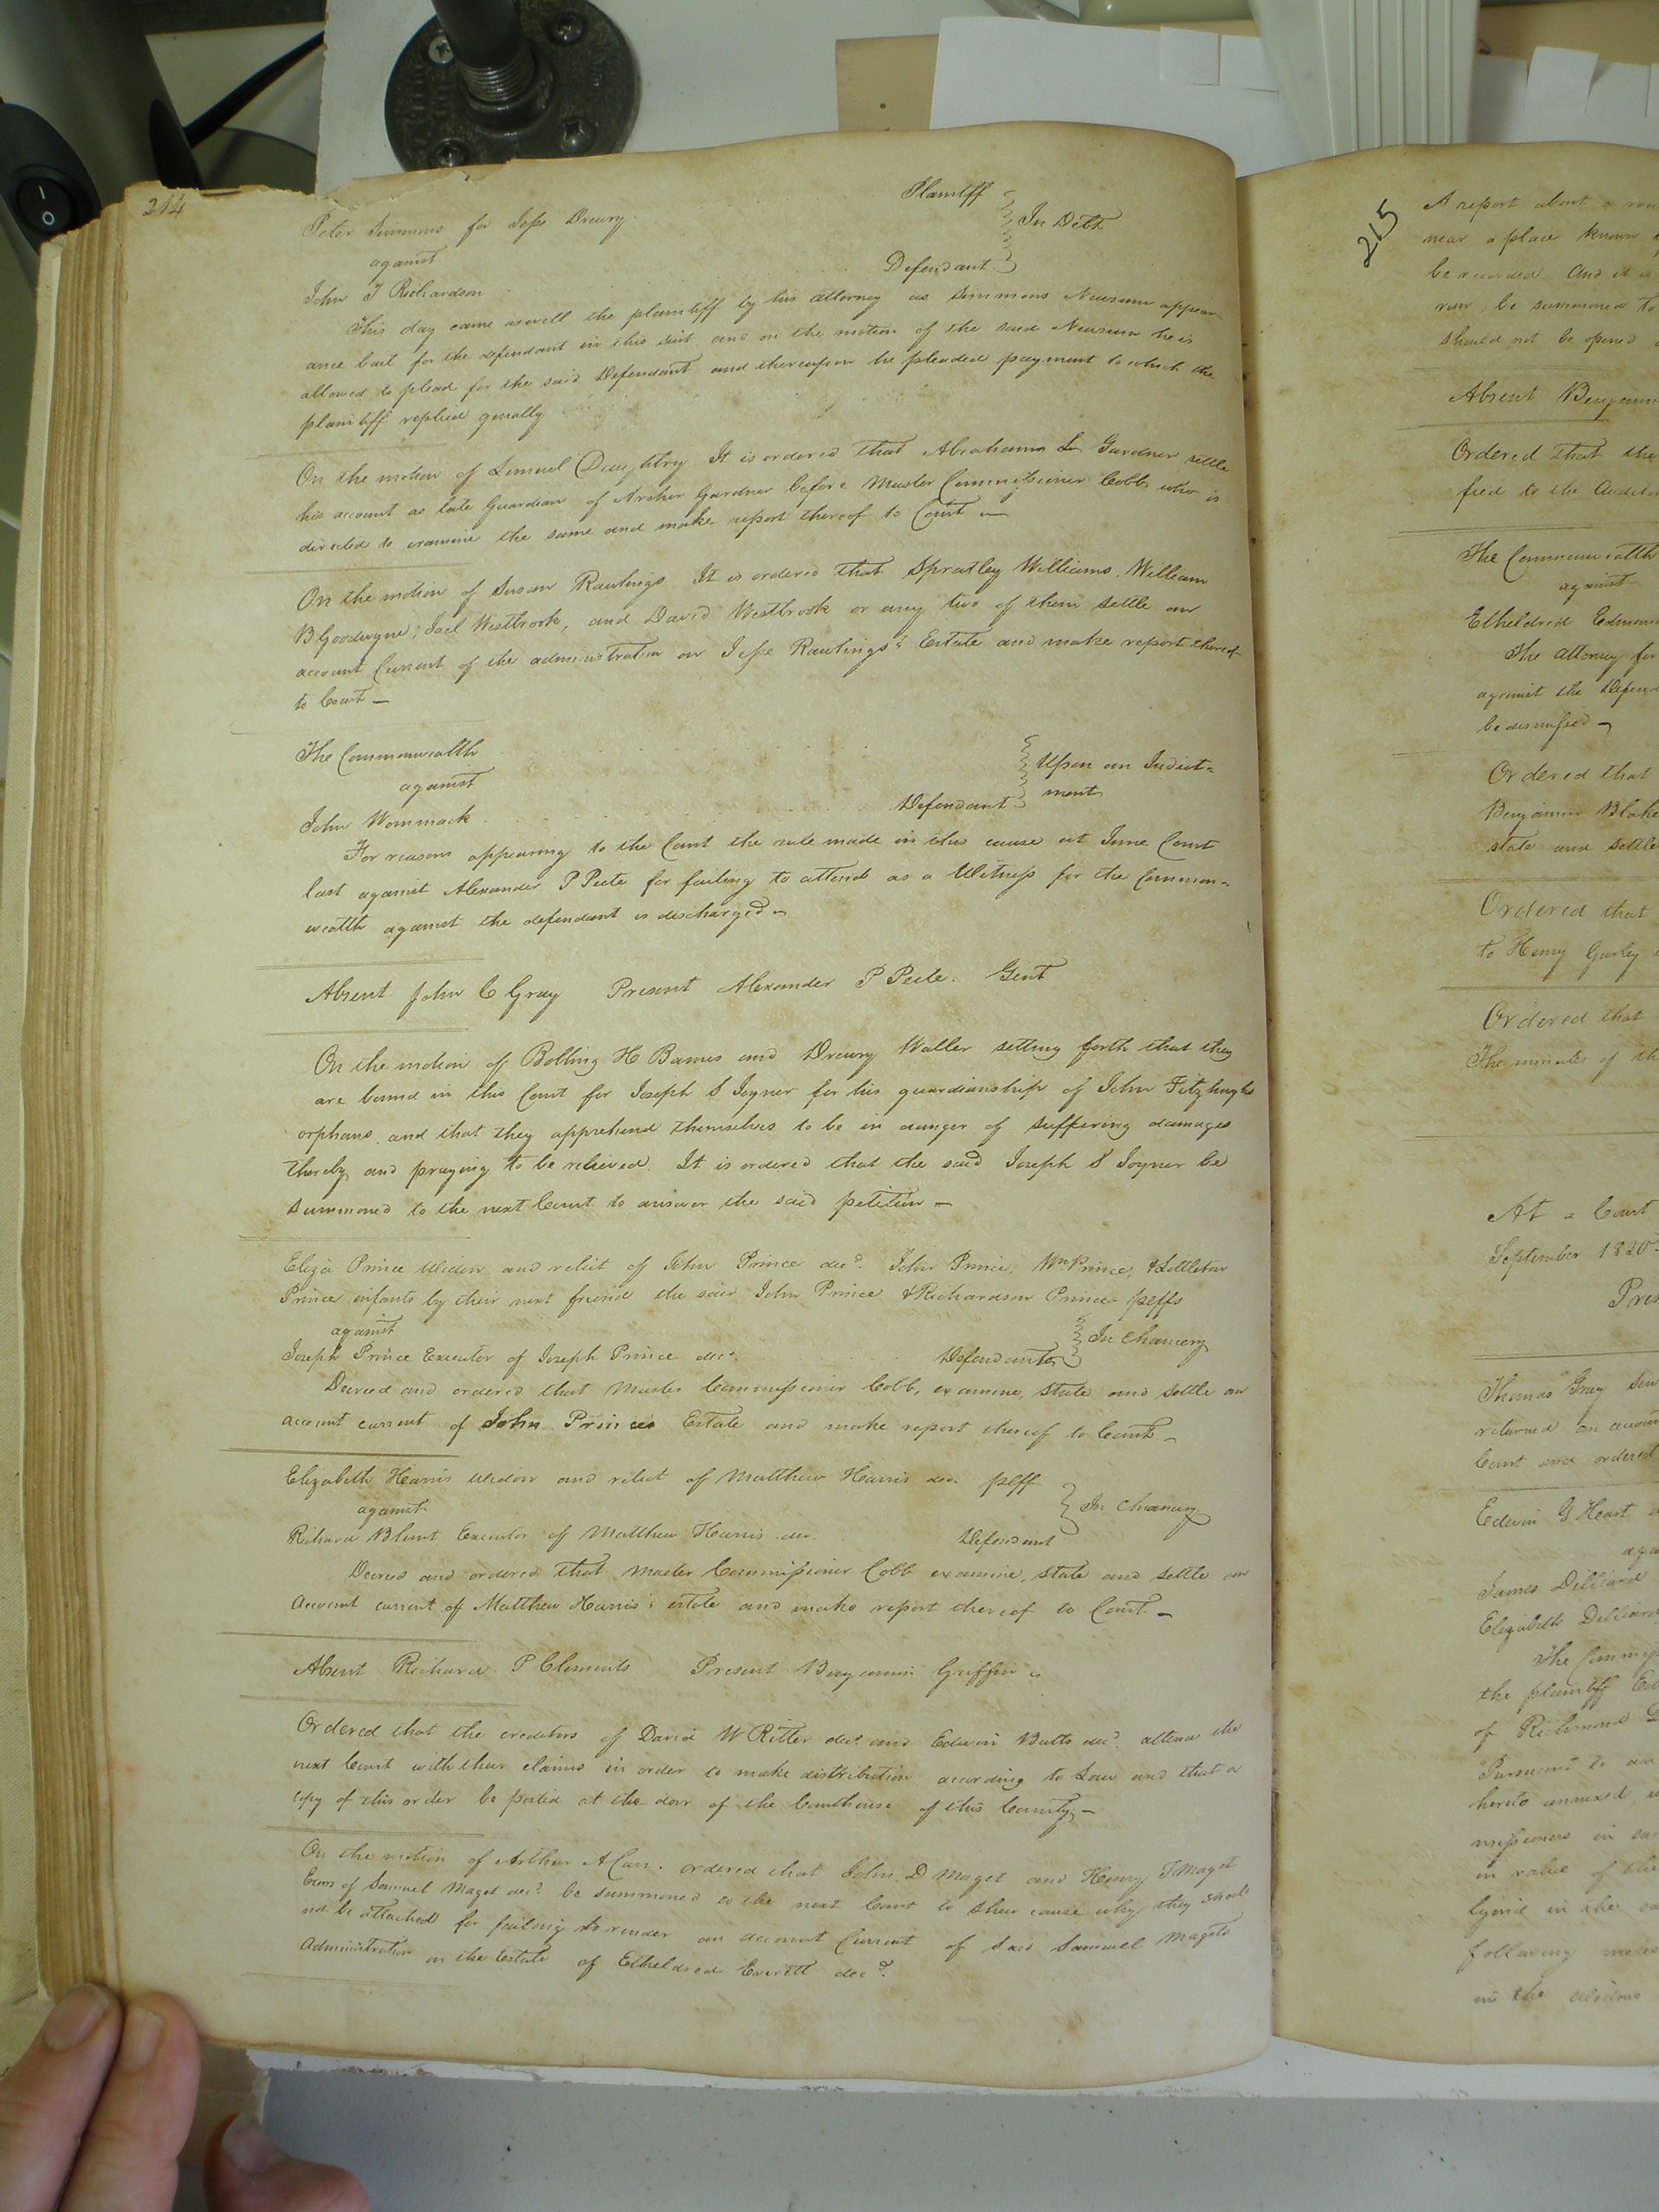 214
Plaintiff
Peter Simmons for Jesse Drewry } In Debt
against
Defendant
John T Richardson
This day came aswell the plaintiff by his attorney as Simmons Newsum appear-
ance bail for the defendant in this suit and on the motion of the said Newsum he is
allowed to plead for the said Defendant and thereupon he pleaded payment to which the
plaintiff replied generally
On the motion of Lemuel Daughtry It is ordered that Abraham Gardner settle
his account as late Guardian of Archer Gardner before Master Commissioner Cobb who is
directed to examine the same and make report thereof to Court —
On the motion of Susan Rawlings It is ordered that Spratley Williams, William
B Goodwyne, Joel Westbrook, and David Westbrook or any two of them settle an
account Current of the administration on Jesse Rawlings's Estate and make report thereof
to Court —
The Commonwealth
against } Upon an Indict=
John Wommack Defendant ment
For reasons appearing to the Court the rule made in this cause at June Court
last against Alexander P Peete for failing to attend as a Witness for the Common-
wealth against the defendant is discharged —
Absent John C Gray Present Alexander P Peete. Gent
On the motion of Bolling H Barnes and Drewry Waller setting forth that they
are bound in this Court for Joseph S Joyner for his guardianship of John Fitzhughs
orphans and that they apprehend themselves to be in danger of suffering damages
thereby and praying to be relieved. It is ordered that the said Joseph S Joyner be
Summoned to the next Court to answer the said petition —
Eliza Prince Widow and relict of John Prince decd. John Prince, Wm Prince, & Littleton
Prince infants by their next friend the said John Prince & Richardson Prince plffs
against } In Chancery
Joseph Prince Executor of Joseph Prince decd. Defendants
Decreed and ordered that Master Commissioner Cobb, examine, state and settle an
account current of John Princes Estate and make report thereof to Court —
Elizabeth Harris Widow and relict of Matthew Harris dec plff
against } In Chancery
Richard Blunt Executor of Matthew Harris dec. Defendant
Decreed and ordered that Master Commissioner Cobb examine, state and settle an
Account current of Matthew Harris's estate and make report thereof to Court —
Absent Richard P Clements Present Benjamin Griffin
Ordered that the creditors of David W Ritter decd and Edwin Butts decd. attend the
next Court with their claims in order to make distribution according to Law and that a
copy of this order be posted at the door of the Courthouse of this County —
On the motion of Arthur A Carr. ordered that John D Maget and Henry T Maget
Exors of Samuel Maget decd. be summoned to the next Court to shew cause why they should
not be attached for failing to render an account Current of said Samuel Magets
Administration on the Estate of Etheldred Everett decd.
215
A report about a
near a place known
be recorded And it is
be summoned to
should not be opened
Absent Benjamin
Ordered that the
fied to the Auditor
The Commonwealth
against
Etheldred Edmun
The Attorney for
against the Defen
be dismissed —
Ordered that
Benjamin Blake
state and settle
Ordered that
to Henry Gurley
Ordered that
The minutes of th
At a Court
September 1820
Pres
Thomas Gray
returned an accoun
Court and ordered
Edwin G Heart
aga
James Dilliard
Elizabeth Dilliard
The Commiss
the plaintiff
of Richmond
Pursuant to an
hereto annexed
missioners in
in value of the
lying in the
following
in the widows